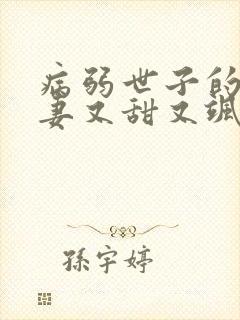 病弱世子的
妻又甜又飒
孫宇婷